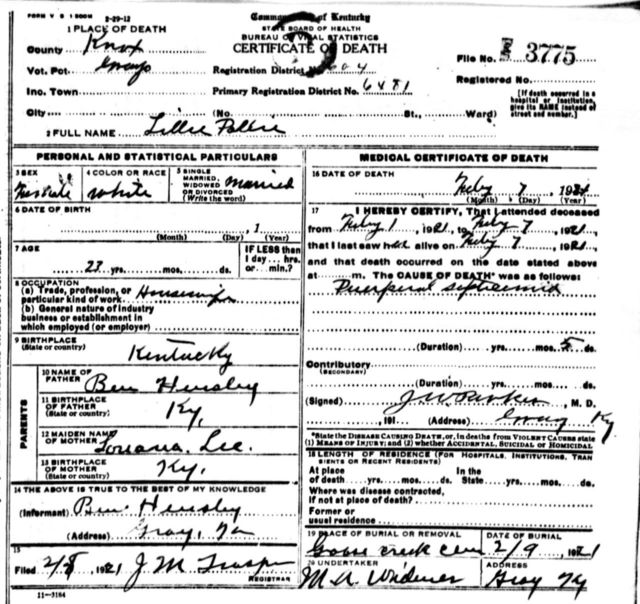 FORM V S 1 500M 2-29-12
Commonwealth of Kentucky
STATE BOARD OF HEALTH
BUREAU OF VITAL STATISTICS
CERTIFICATE OF DEATH
1 PLACE OF DEATH
County Knox
Vot. Pct. Grays
Inc. Town
City (No. St., Ward)
Registration District No.
Primary Registration District No. 6481
File No. 3775
Registered No.
[If death occurred in a hospital or institution, give its NAME instead of street and number.]
2 FULL NAME Lillie
PERSONAL AND STATISTICAL PARTICULARS
3 SEX Female
4 COLOR OR RACE white
5 SINGLE MARRIED, WIDOWED OR DIVORCED (Write the word) Married
6 DATE OF BIRTH
, 1
(Month) (Day) (Year)
7 AGE
27 yrs. mos. ds.
IF LESS than 1 day.... hrs. or.... min.?
8 OCCUPATION
(a) Trade, profession, or particular kind of work Housewife
(b) General nature of industry business or establishment in which employed (or employer)
9 BIRTHPLACE (State or country) Kentucky
PARENTS
10 NAME OF FATHER Ben Hensley
11 BIRTHPLACE OF FATHER (State or country) Ky.
12 MAIDEN NAME OF MOTHER Lee
13 BIRTHPLACE OF MOTHER (State or country) Ky.
14 THE ABOVE IS TRUE TO THE BEST OF MY KNOWLEDGE
(Informant) Ben Hensley
(Address) Gray, Ky
15
Filed 2/8 1921 J M
REGISTRAR
11-3184
MEDICAL CERTIFICATE OF DEATH
16 DATE OF DEATH
Feby 7 1921
(Month) (Day) (Year)
17 I HEREBY CERTIFY, That I attended deceased
from Feby 1, 1921, to Feby 7, 1921,
that I last saw her alive on Feby 7, 1921,
and that death occurred on the date stated above
at m. The CAUSE OF DEATH* was as follows:
Puerperal septicemia
(Duration) yrs. mos. 5 ds.
Contributory
(SECONDARY)
(Duration) yrs. mos. ds.
(Signed) J W Parker, M. D.
, 191 (Address) Gray Ky
*State the DISEASE CAUSING DEATH, or, in deaths from VIOLENT CAUSES state (1) MEANS OF INJURY; and (2) whether ACCIDENTAL, SUICIDAL or HOMICIDAL
18 LENGTH OF RESIDENCE (FOR HOSPITALS, INSTITUTIONS, TRANSIENTS OR RECENT RESIDENTS)
At place of death yrs. mos. ds. In the State yrs. mos. ds.
Where was disease contracted, if not at place of death?
Former or usual residence
19 PLACE OF BURIAL OR REMOVAL Goose creek cem
DATE OF BURIAL 2/9, 1921
20 UNDERTAKER M. A. Widener
ADDRESS Gray Ky